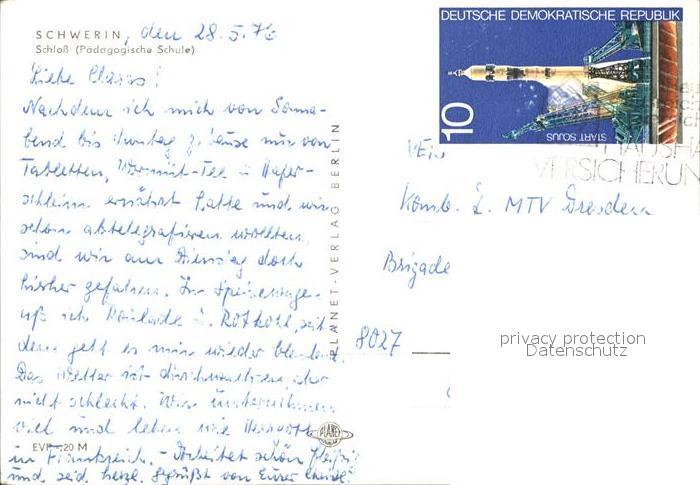 SCHWERIN, den 28.5.76
Schloß (Pädagogische Schule)
Liebe Claas!
Nachdem ich mich von Sonna-
bend bis Montag z. Hause nur von
Tabletten, Wermut-Tee u. Hafer-
schleim ernährt hatte und wir
schon abtelegrafieren wollten,
sind wir am Dienstag doch
hierher gefahren. Im Speisewage-
aß ich Roulade u. Rotkohl, seit
dem geht es mir wieder blendend.
Das Wetter ist durchwachsen, aber
nicht schlecht. Wir unternehmen
viel und leben wie
in Frankreich. - Arbeitet schön fleißig
und seid herzl. gegrüßt von Eurer
EVP -,20 M
PLANET-VERLAG BERLIN
PLANET
DEUTSCHE DEMOKRATISCHE REPUBLIK
10
START SOJUS
HAUSHA
VERSICHERUN
VEB
Komb. f. MTV Dresden
Brigade
8027
privacy protection
Datenschutz